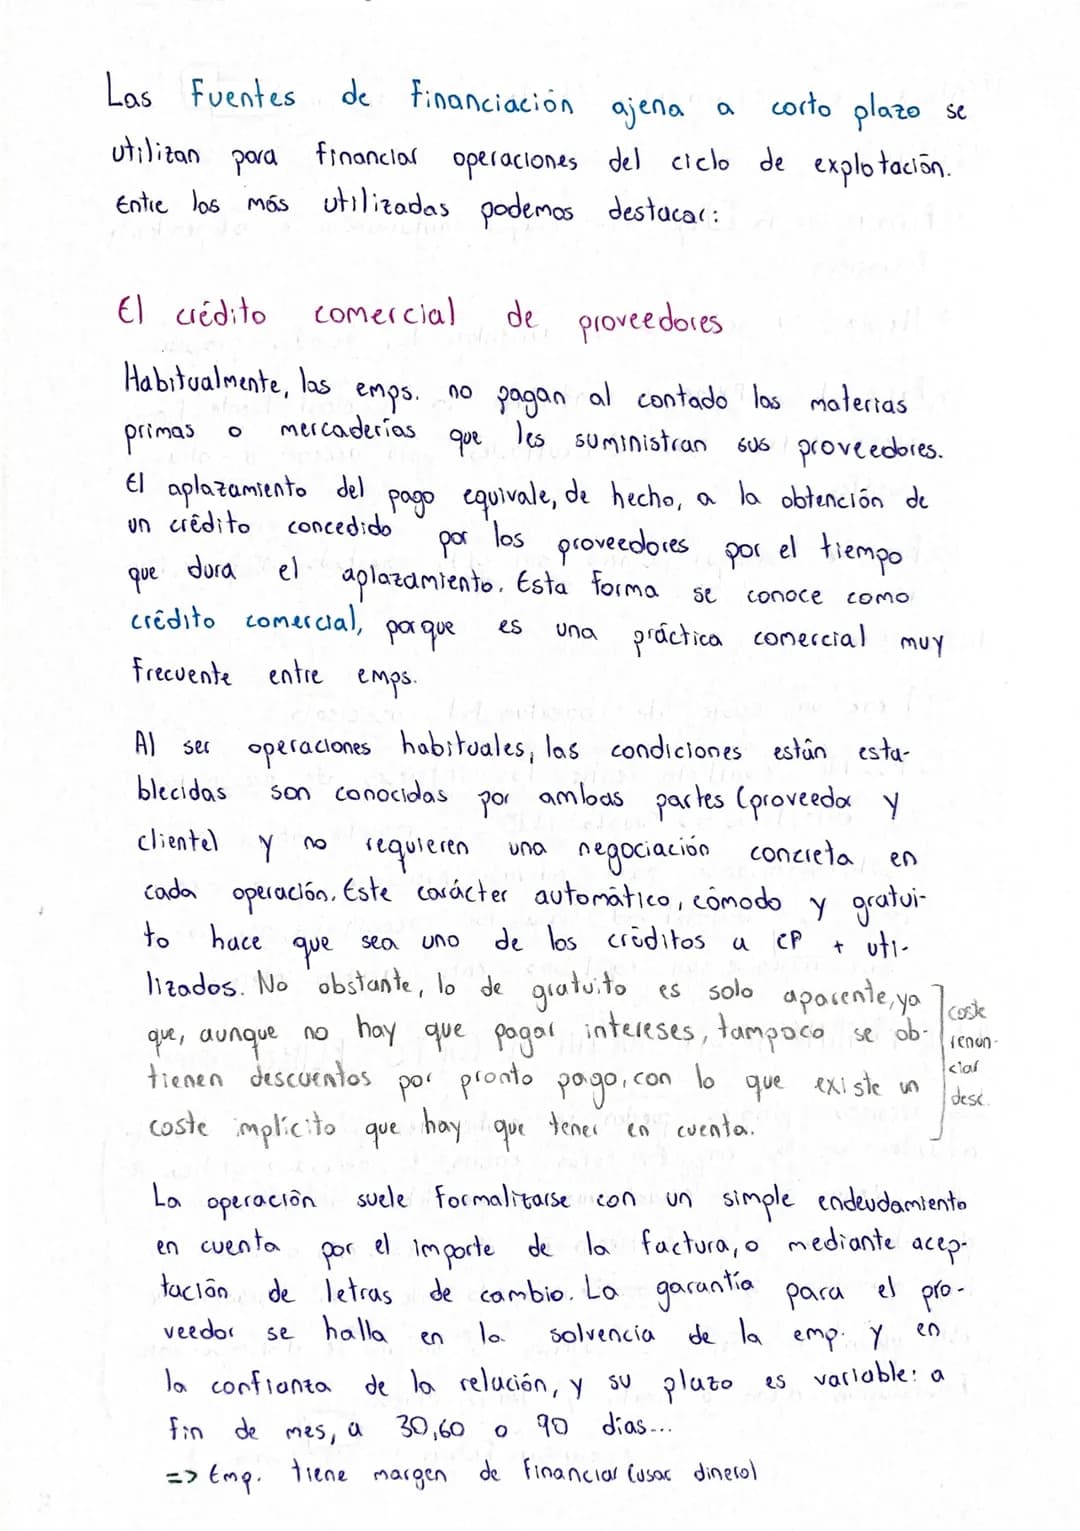 Las fuentes de financiación ajena a corto plazo se
utilizan para financiar operaciones del ciclo de explotación.
Entre las más utilizadas podemos destacar:
El crédito comercial de proveedores
Habitualmente, las emps. no pagan al contado las materias
primas o mercaderías que les suministran sus proveedores.
El aplazamiento del pago equivale, de hecho, a la obtención de
un crédito concedido por los proveedores por el tiempo
que dura el aplazamiento. Esta forma se conoce como
crédito comercial, porque es una práctica comercial muy
frecuente entre emps.
Al ser operaciones habituales, las condiciones están esta-
blecidas son conocidas por ambas partes (proveedor y
cliente) y no requieren una negociación concreta en
cada operación. Este carácter automático, cómodo y gratui-
to hace que sea uno de los créditos a CP + uti-
lizados. No obstante, lo de gratuito es solo aparente, ya
que, aunque no hay que pagar intereses, tampoco se ob-
tienen descuentos por pronto pago, con lo que existe un
coste implícito que hay que tener en cuenta.
coste
renun-
ciar
desc.
La operación suele formalizarse con un simple endeudamiento
en cuenta por el importe de la factura, o mediante acep-
tación de letras de cambio. La garantía para el pro-
veedor se halla en la solvencia de la emp. y en
la confianza de la relación, y su plazo es variable: a
fin de mes, a 30,60 o 90 días...
=> Emp. tiene margen de financiar (usar dinero)